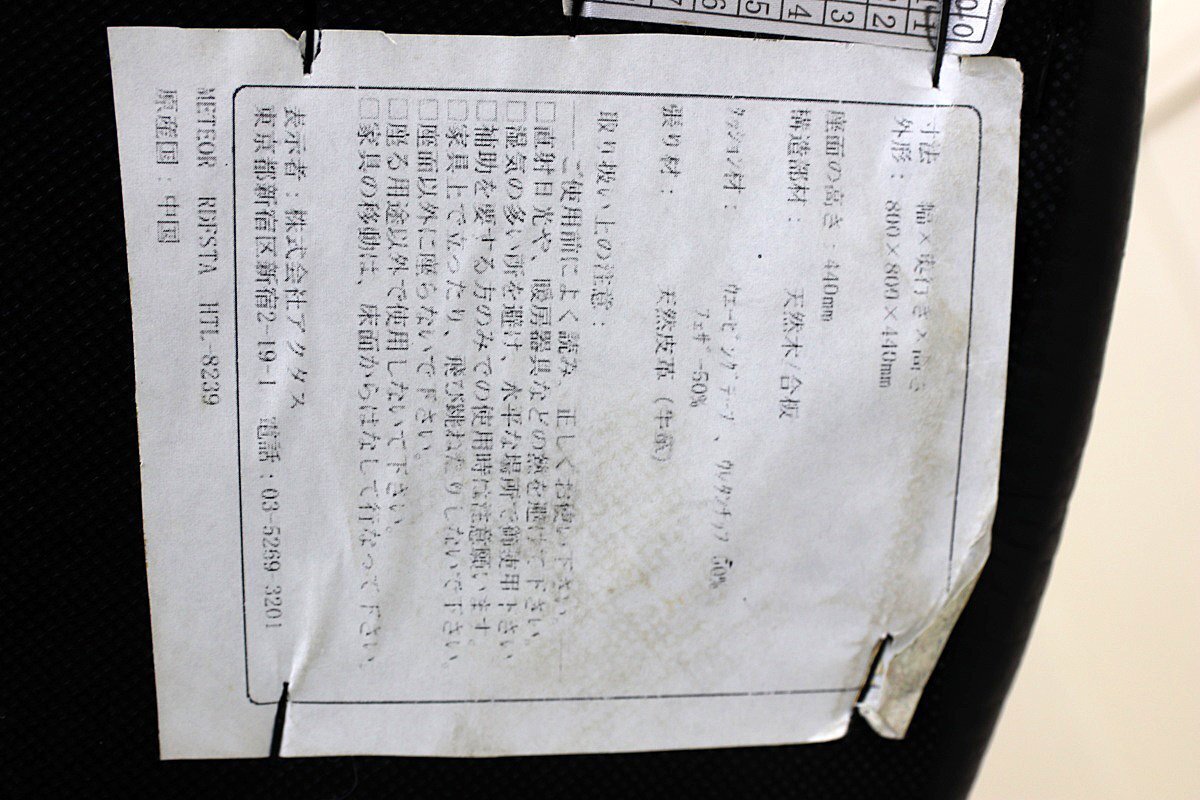 寸法 幅×奥行き×高さ
外形： 800×800×440mm
座面の高さ：440mm
構造部材： 天然木/合板
ｸｯｼｮﾝ材： ｳｴｰﾋﾞﾝｸﾞﾃｰﾌﾟ、ｳﾚﾀﾝﾁｯﾌﾟ 50%
ﾌｪｻﾞｰ50%
張り材： 天然皮革（牛革）
取り扱い上の注意：
――ご使用前によく読み、正しくお使い下さい。――
□直射日光や、暖房器具などの熱を避けて下さい。
□湿気の多い所を避け、水平な場所で御使用下さい
□補助を要する方のみでの使用時は注意願います。
□家具上で立ったり、飛び跳ねたりしないで下さい。
□座面以外に座らないで下さい。
□座る用途以外で使用しないで下さい。
□家具の移動は、床面からはなして行なって下さい。
表示者：株式会社アクタス
東京都新宿区新宿2-19-1 電話：03-5269-3201
METEOR RDESTA HTL-8239
原産国：中国